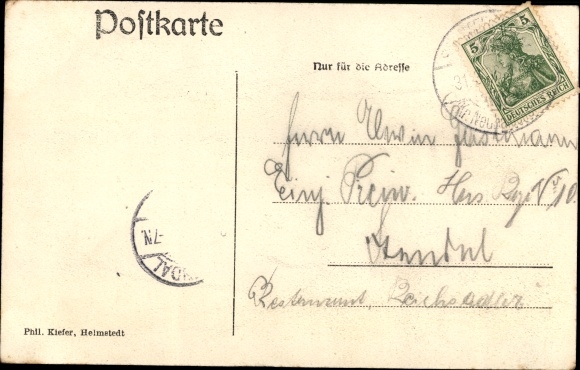 Postkarte
Nur für die Adresse
5 5
DEUTSCHES REICH
Herrn Alwin
Einj. Freiw. Hus Reg N 10.
Stendal
Restaurant, Reichsadler
-7N.
DAL
Phil. Kiefer, Helmstedt